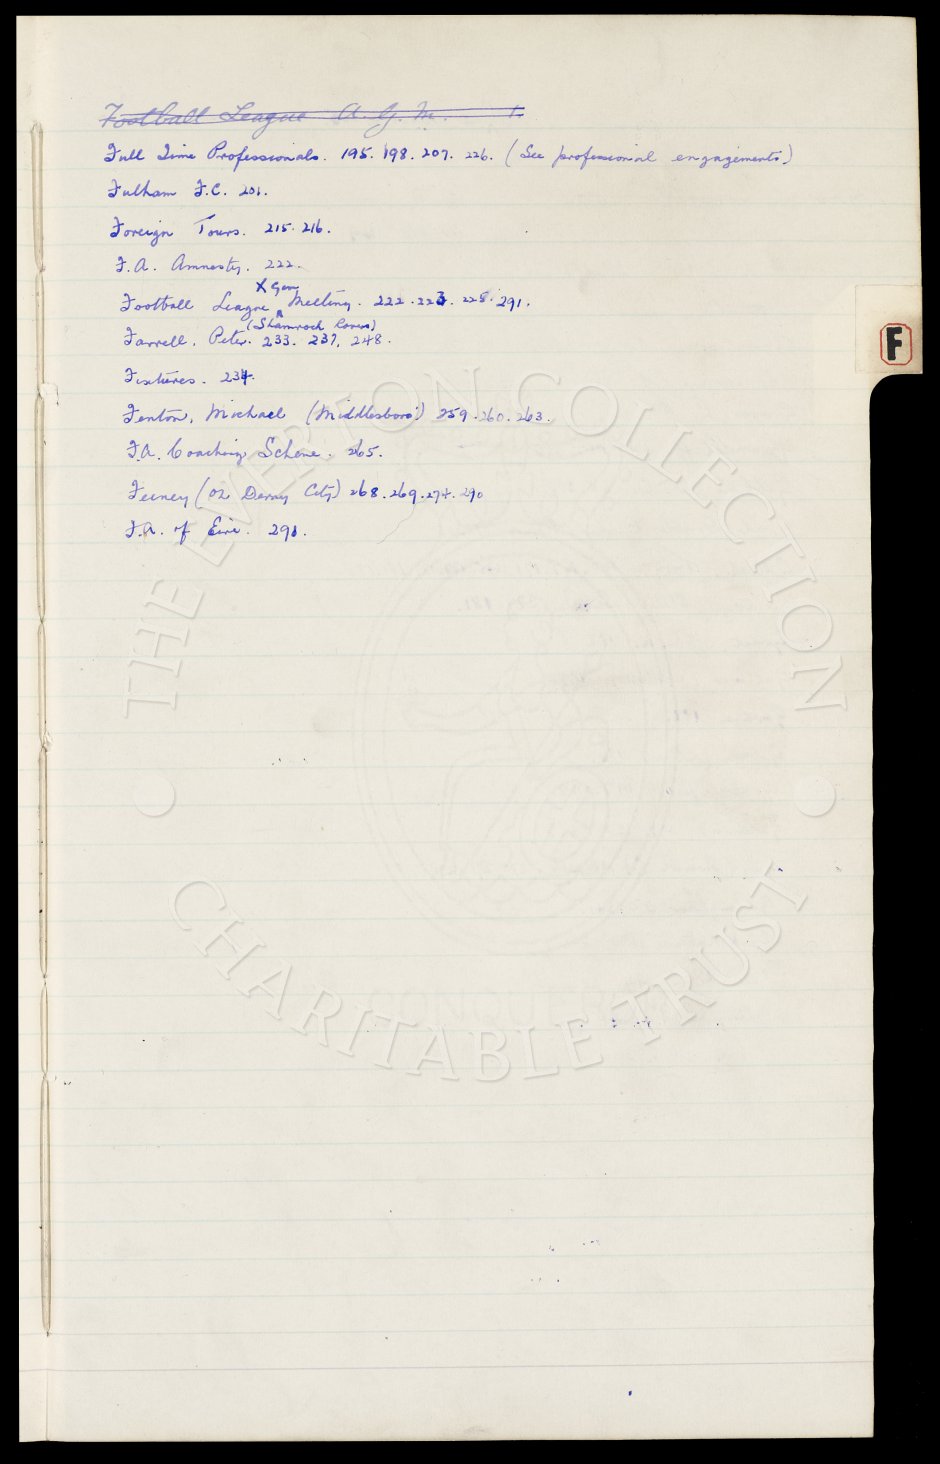 Football League A.G.M. 1.
Full Time Professionals. 195. 198. 207. 226. (See professional engagements)
Fulham F.C. 201.
Foreign Tours. 215. 216.
F.A. Amnesty. 222.
X Gen
Football League Meeting. 222. 223. 228. 291.
(Shamrock Rovers)
Farrell, Peter. 233. 237. 248.
Fixtures. 234.
Fenton, Michael (Middlesboro') 259. 260. 263.
F.A. Coaching Scheme. 265.
Feeney (of Derry City) 268. 269. 274. 290
F.A. of Eire. 290.
F
THE EVERTON COLLECTION
CHARITABLE TRUST